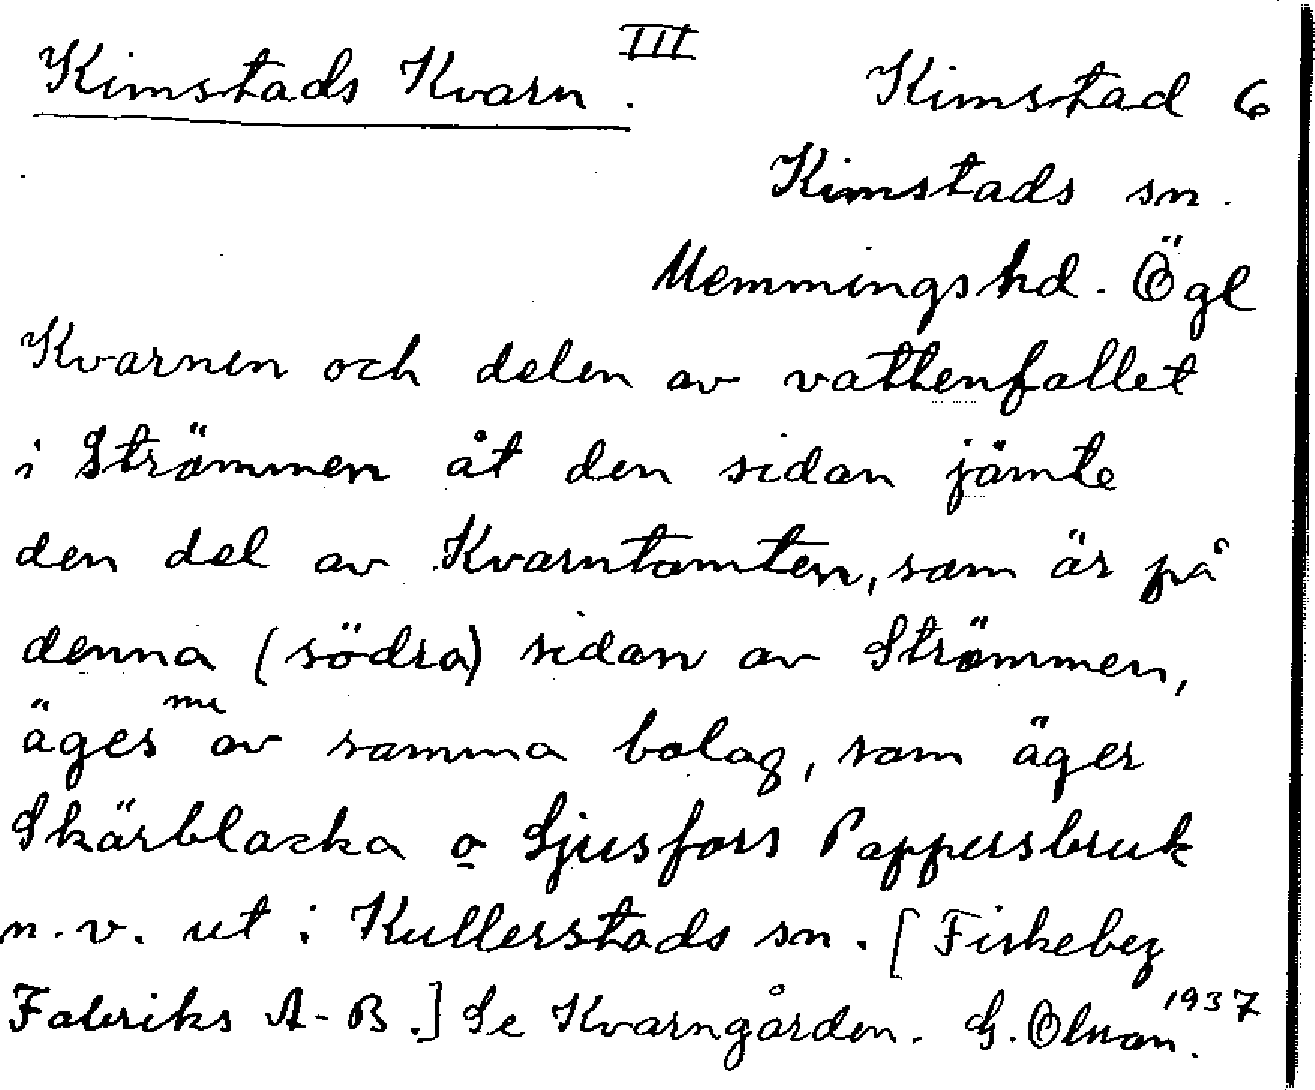 III
Kimstads Kvarn. Kimstad 6
Kimstads sn.
Memmings hd. Ögl
Kvarnen och delen av vattenfallet
i Strömmen åt den sidan jämte
den del av Kvarntomten, som är på
denna (södra) sidan av Strömmen,
äges nu av samma bolag, som äger
Skärblacka o Ljusfors Pappersbruk
n.v. ut i Kullerstads sn. [Fiskeby
Fabriks A-B.] Se Kvarngården. G. Olson. 1937